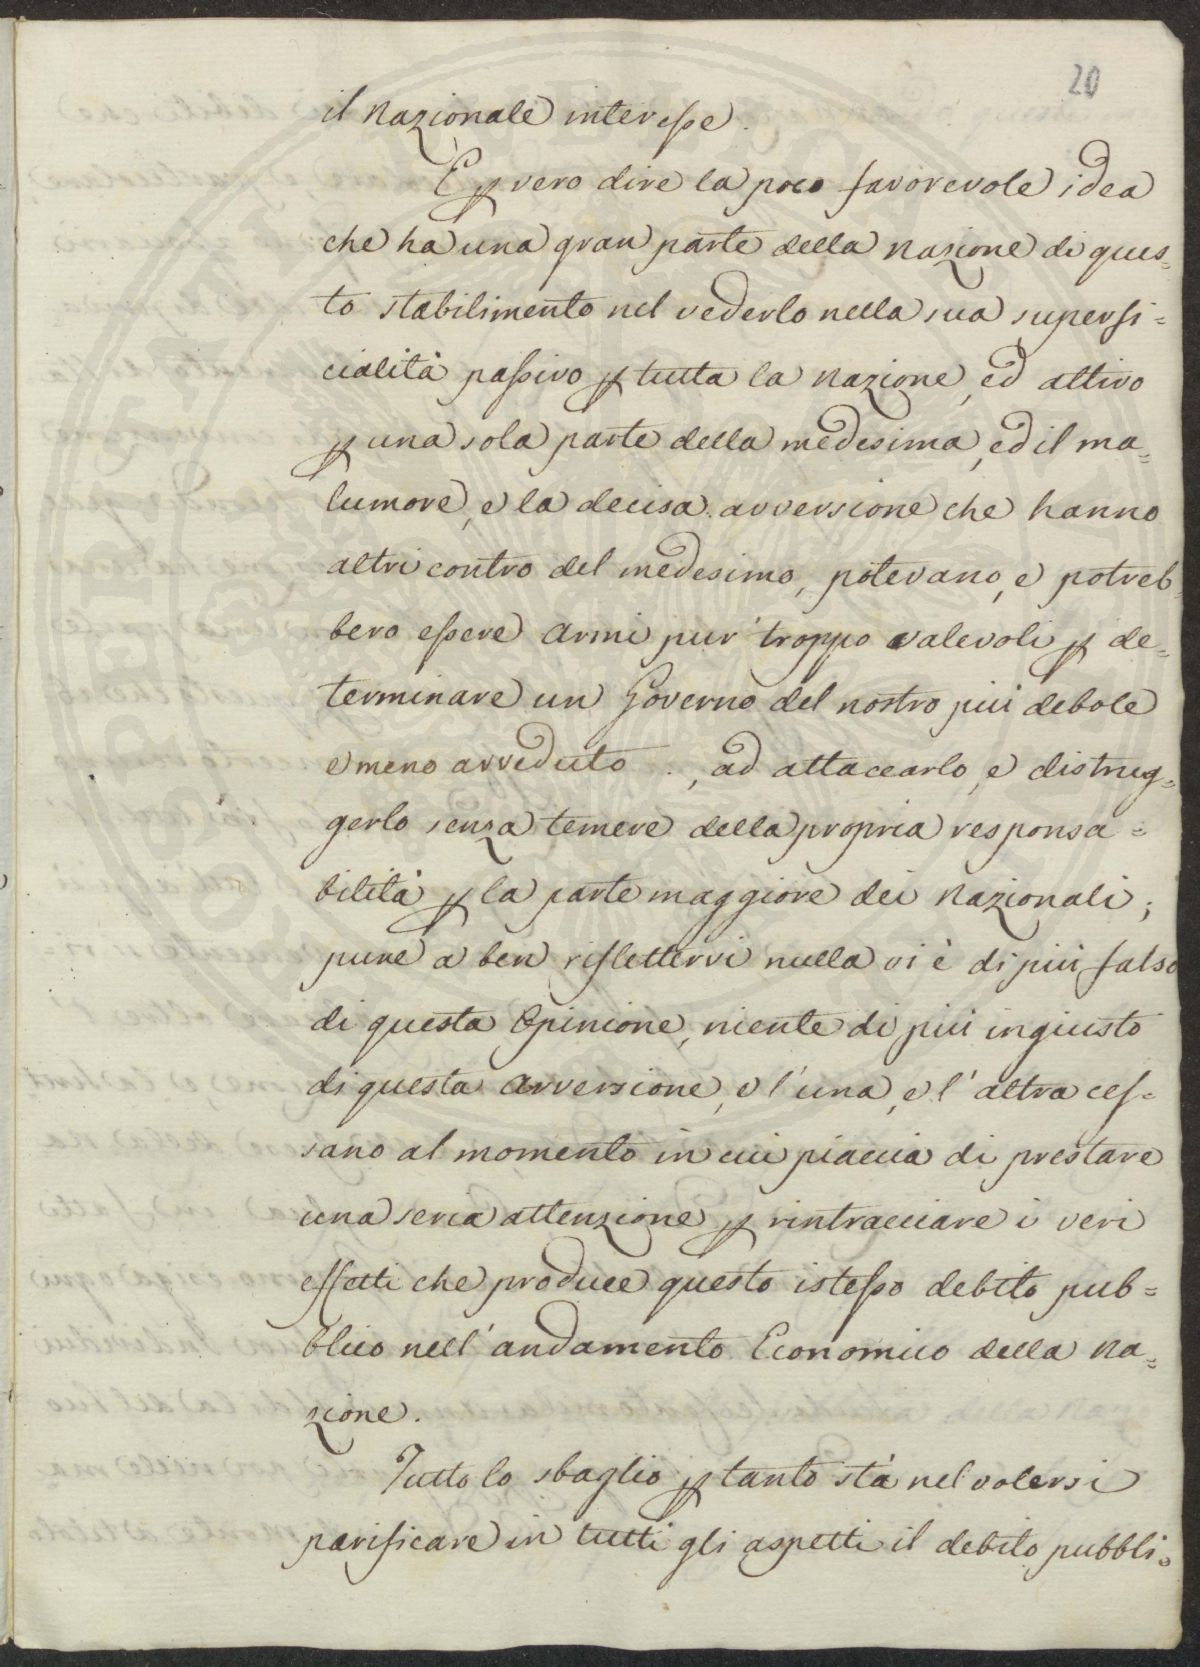 20
il Nazionale interesse.
E ꝑ vero dire la poco favorevole idea
che ha una gran parte della Nazione di ques=
to stabilimento nel vederlo nella sua superfi=
cialità passivo ꝑ tutta la Nazione, ed attivo
ꝑ una sola parte della medesima, ed il ma=
lumore, e la decisa avversione che hanno
altri contro del medesimo, potevano, e potreb
bero essere armi pur' troppo valevoli ꝑ de=
terminare un Governo del nostro più debole
e meno avveduto, ad attaccarlo, e distrug=
gerlo senza temere della propria responsa=
bilità ꝑ la parte maggiore dei Nazionali;
pure a ben riflettervi nulla vi è di più falso
di questa Opinione, niente di più ingiusto
di questa avversione, e l'una, e l'altra ces=
sano al momento in cui piaccia di prestare
una seria attenzione ꝑ rintracciare i veri
effetti che produce questo istesso debito pub=
blico nell'andamento Economico della Na=
zione.
Tutto lo sbaglio ꝑ tanto stà nel volersi
parificare in tutti gli aspetti il debito pubbli=